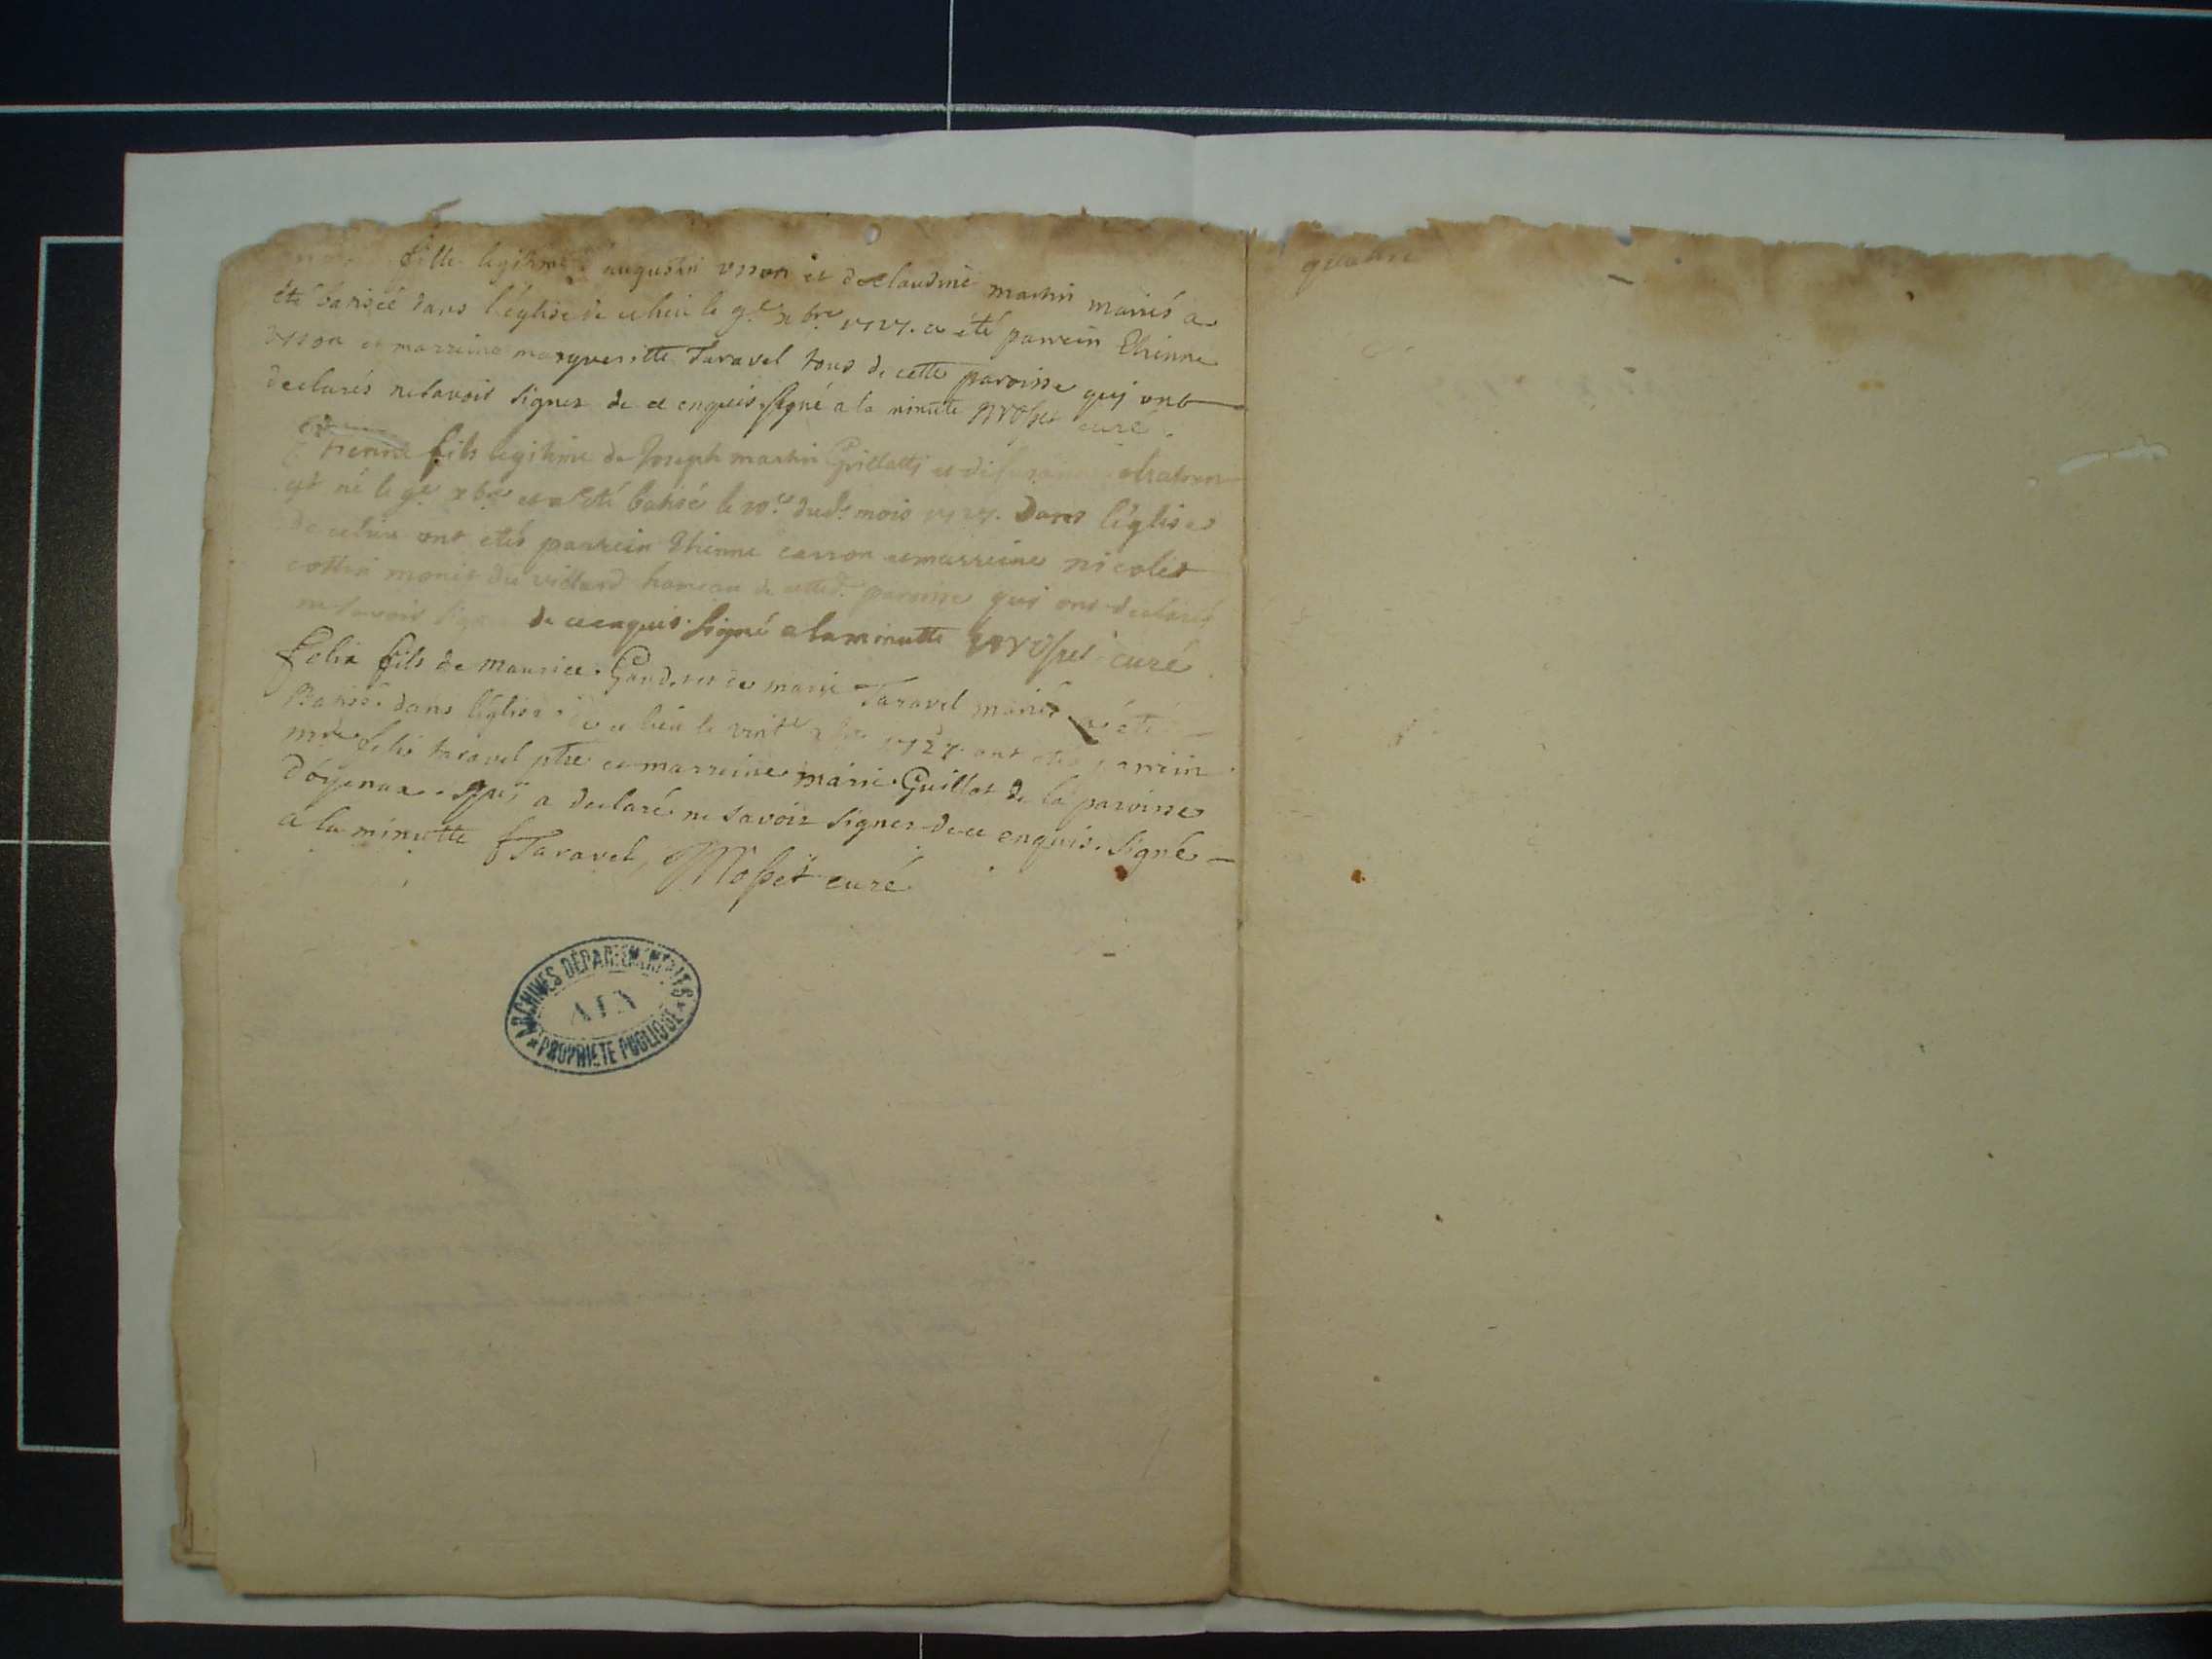 fille legitime d'augustin vsson et de claudine martin mariés a
été batisée dans l'église de ce lieu le 9e xbre 1727. a été parrein Ethienne
vsson et marreine margueritte Taravel tous de cette paroisse quj ont
declarés ne savoir signer de ce enquis. signé a la minute Mosset curé.
Ethienne fils legitime de Joseph martin Guillatti et de
est né le 9e xbre et a été batisé le 10e dudt mois 1727. Dans l'église
de ce lieu ont etés parrein Ethienne carron et marreine nicole
cottin monie du villard hameau de cette de paroisse qui ont declaré
ne savoir signer de ce enquis. signé a la minutte Mosset curé
felix fils de maurice et de marie Taravel mariés a été
Batisé dans l'église de ce lieu le xbre 1727. ont etés parrein
mre felix taravel ptre et marreine marie Guillot de la paroisse
d'oyenax. quj a declaré ne savoir signer de ce enquis. signé
a la minutte f Taravel, Mosset curé
ARCHIVES DÉPARTEMENTALES
AIN
PROPRIETE PUBLIQUE
quatre